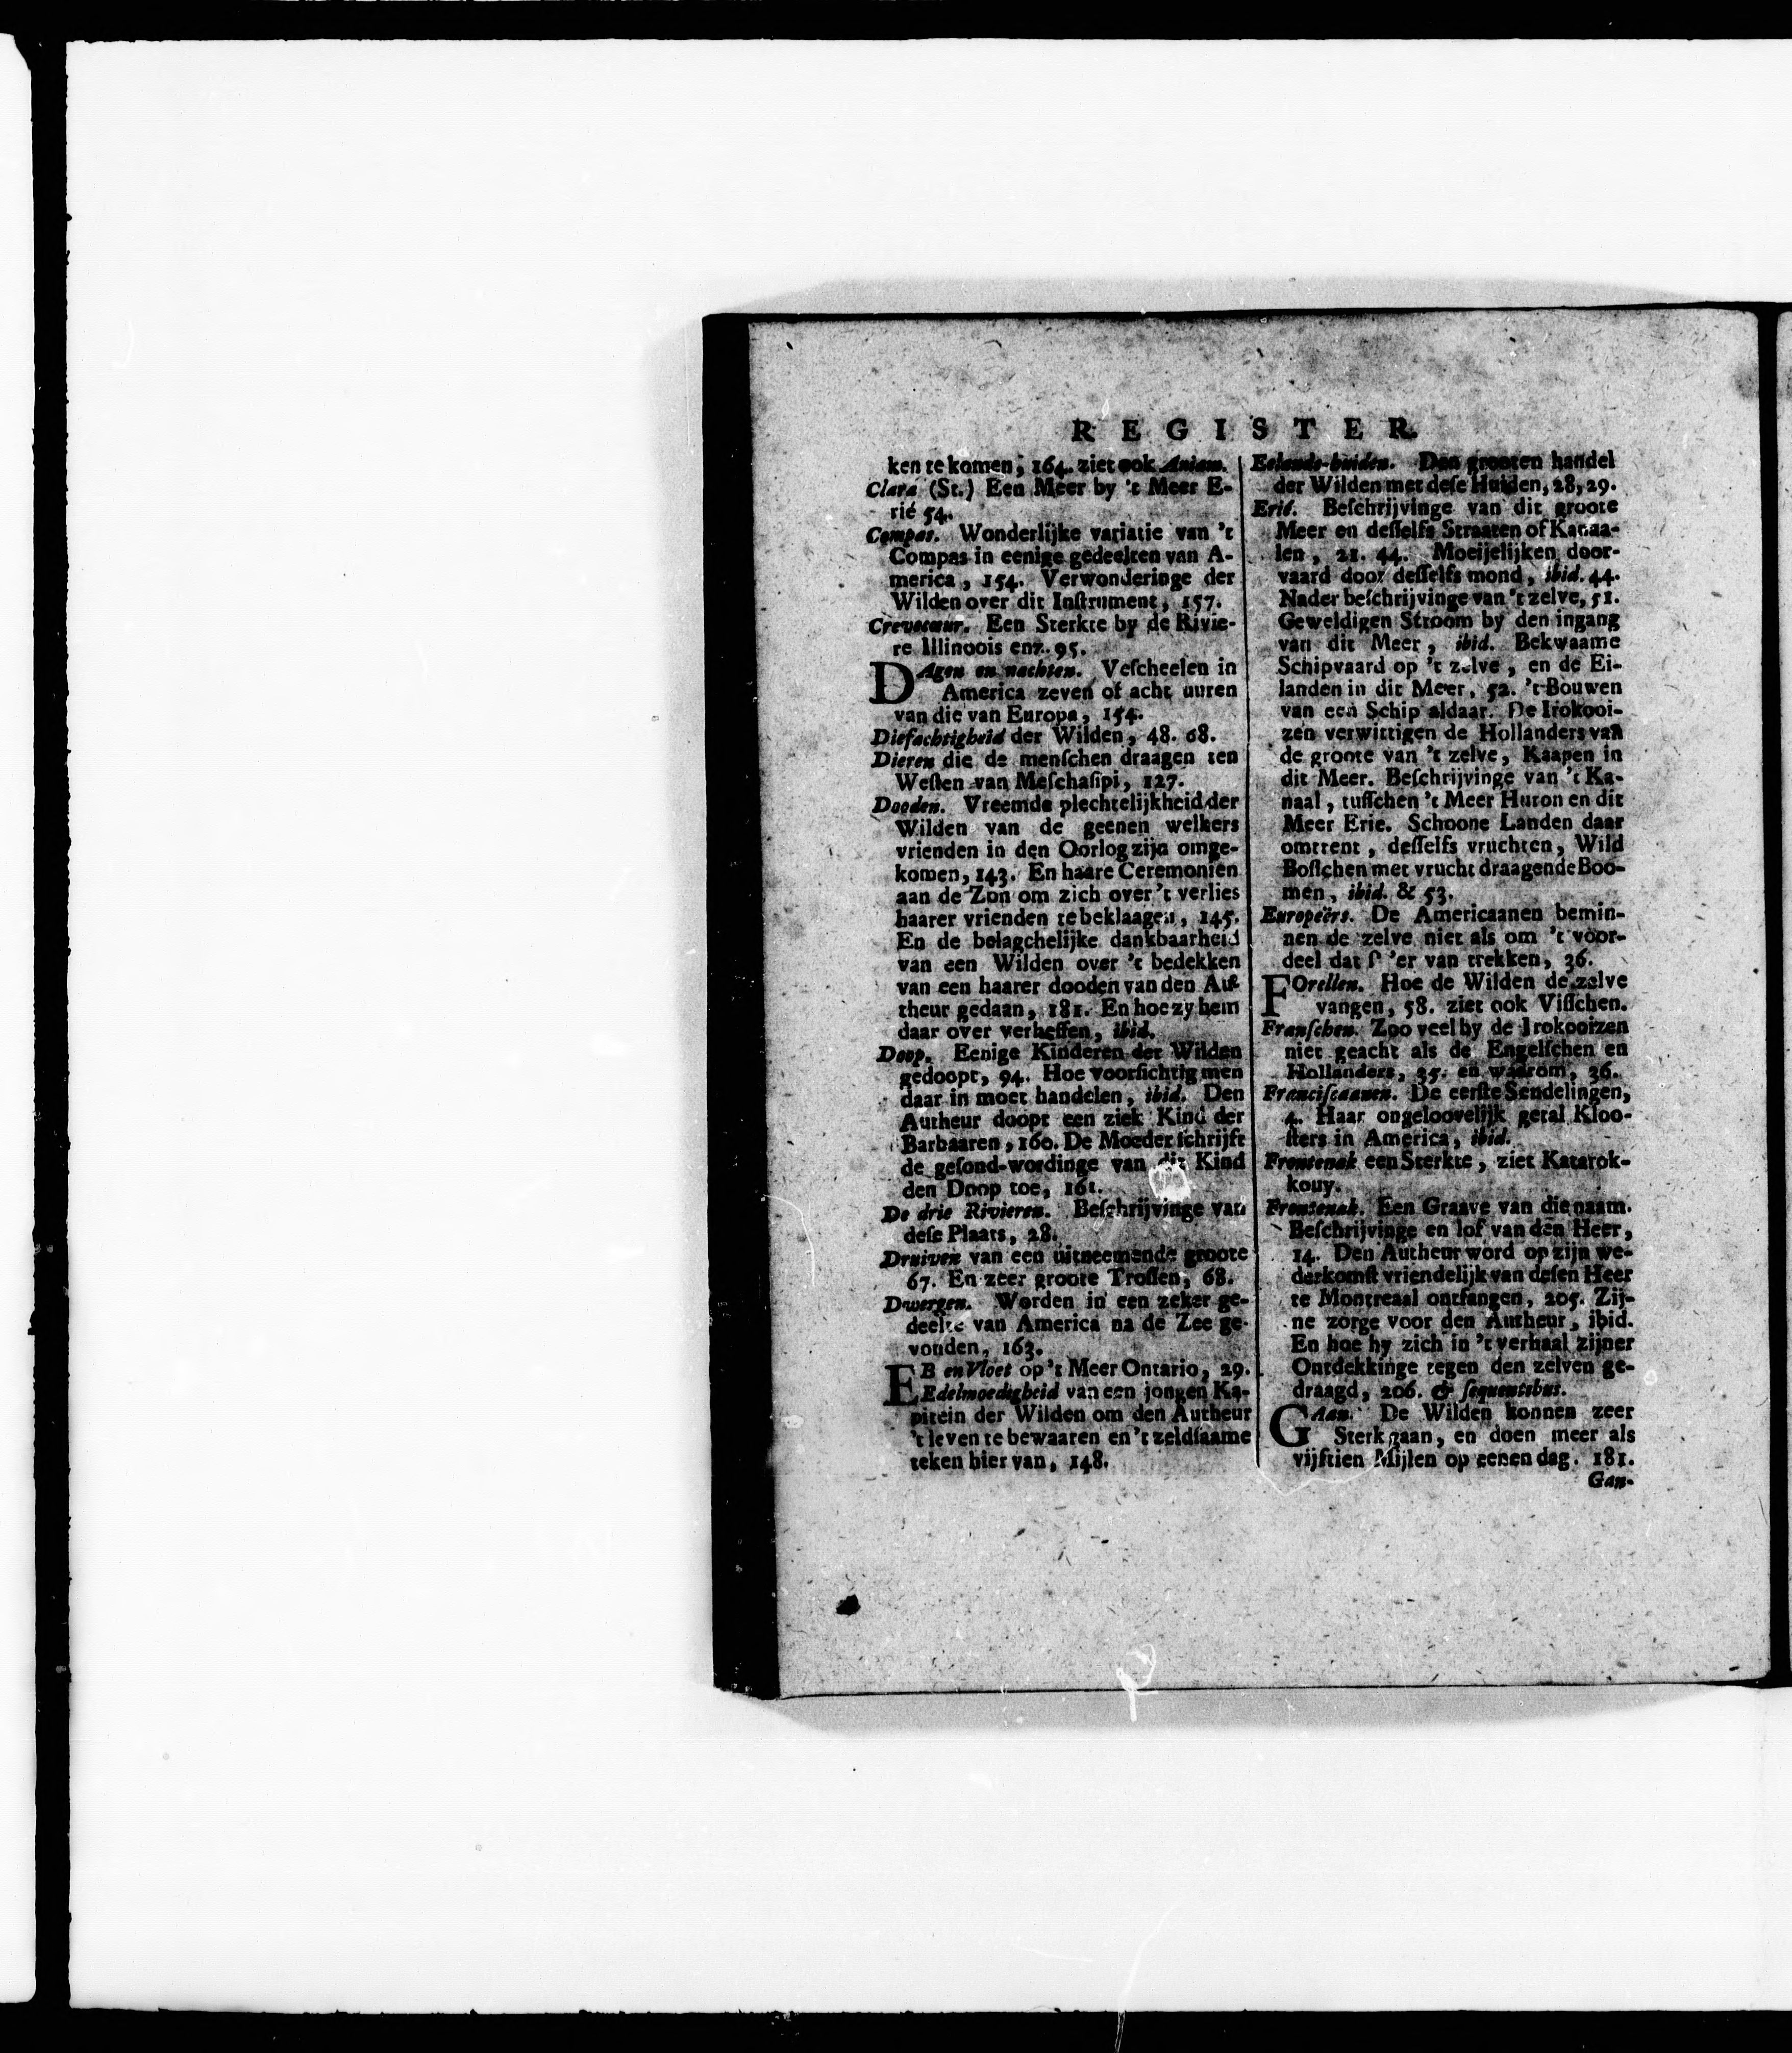 REGISTER.
ken te komen, 164. ziet ook Aniam.
Clara (St.) Een Meer by 't Meer E-
rié 54.
Compas. Wonderlijke variatie van 't
Compas in eenige gedeelten van A-
merica, 154. Verwonderinge der
Wilden over dit Inſtrument, 157.
Crevecœur. Een Sterkte by de Rivie-
re Illinoois enz. 95.
DAgen en nachten. Veſcheelen in
America zeven of acht uuren
van die van Europa, 154.
Diefachtigheid der Wilden, 48. 68.
Dieren die de menſchen draagen ten
Weſten van Meſchaſipi, 127.
Dooden. Vreemde plechtelijkheid der
Wilden van de geenen welkers
vrienden in den Oorlog zijn omge-
komen, 143. En haare Ceremonien
aan de Zon om zich over 't verlies
haarer vrienden te beklaagen, 145.
En de belagchelijke dankbaarheid
van een Wilden over 't bedekken
van een haarer dooden van den Au-
theur gedaan, 181. En hoe zy hem
daar over verheffen, ibid.
Doop. Eenige Kinderen der Wilden
gedoopt, 94. Hoe voorſichtig men
daar in moet handelen, ibid. Den
Autheur doopt een ziek Kind der
Barbaaren, 160. De Moeder ſchrijft
de geſond-wordinge van dit Kind
den Doop toe, 161.
De drie Rivieren. Beſchrijvinge van
deſe Plaats, 28.
Druiven van een uitneemende groote
67. En zeer groote Troſſen, 68.
Dwergen. Worden in een zeker ge-
deelte van America na de Zee ge-
vonden, 163.
EB en Vloet op 't Meer Ontario, 29.
Edelmoedigheid van een jongen Ka-
pitein der Wilden om den Autheur
't leven te bewaaren en 't zeldſaame
teken hier van, 148.
Eelands-huiden. Den grooten handel
der Wilden met deſe Huiden, 28, 29.
Erié. Beſchrijvinge van dit groote
Meer en deſſelfs Straaten of Kanaa-
len, 21. 44. Moeijelijken door-
vaard door deſſelfs mond, ibid. 44.
Nader beſchrijvinge van 't zelve, 51.
Geweldigen Stroom by den ingang
van dit Meer, ibid. Bekwaame
Schipvaard op 't zelve, en de Ei-
landen in dit Meer, 52. 't Bouwen
van een Schip aldaar. De Irokooi-
zen verwittigen de Hollanders van
de groote van 't zelve, Kaapen in
dit Meer. Beſchrijvinge van 't Ka-
naal, tuſſchen 't Meer Huron en dit
Meer Erie. Schoone Landen daar
omtrent, deſſelfs vruchten, Wild
Boſſchen met vrucht draagende Boo-
men, ibid. & 53.
Europeërs. De Americaanen bemin-
nen de zelve niet als om 't voor-
deel dat ſ' 'er van trekken, 36.
FOrellen. Hoe de Wilden de zelve
vangen, 58. ziet ook Viſſchen.
Franſchen. Zoo veel by de Irokooizen
niet geacht als de Engelſchen en
Hollanders, 35. en waarom, 36.
Franciſcaanen. De eerſte Sendelingen,
4. Haar ongeloovelijk getal Kloo-
ſters in America, ibid.
Frontenak een Sterkte, ziet Katarok-
kouy.
Frontenak. Een Graave van die naam.
Beſchrijvinge en lof van den Heer,
14. Den Autheur word op zijn we-
derkomſt vriendelijk van deſen Heer
te Montreaal ontfangen, 205. Zij-
ne zorge voor den Autheur, ibid.
En hoe hy zich in 't verhaal zijner
Ontdekkinge tegen den zelven ge-
draagd, 206. & ſequentibus.
GAan. De Wilden konnen zeer
Sterk gaan, en doen meer als
vijftien Mijlen op eenen dag. 181.
Gan-